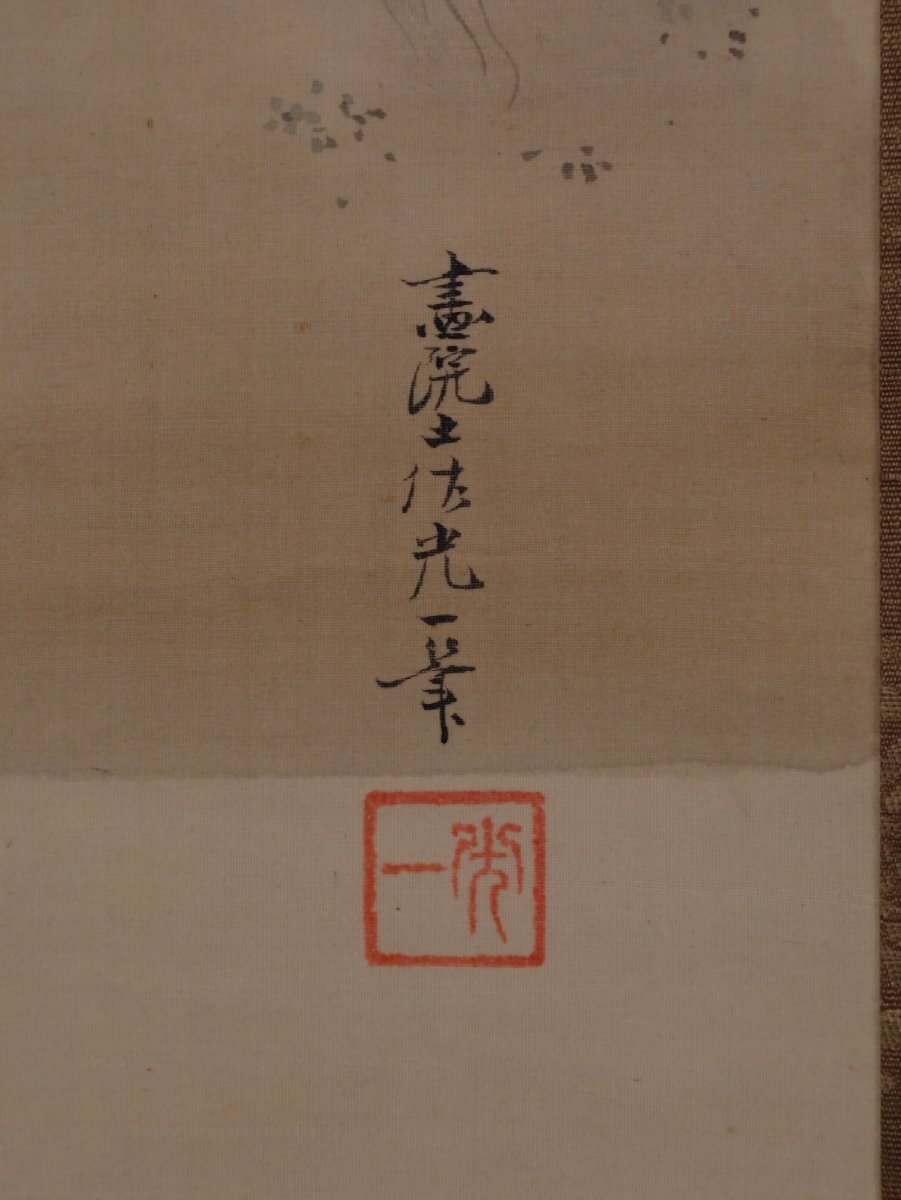 畫院土佐光一筆
光一